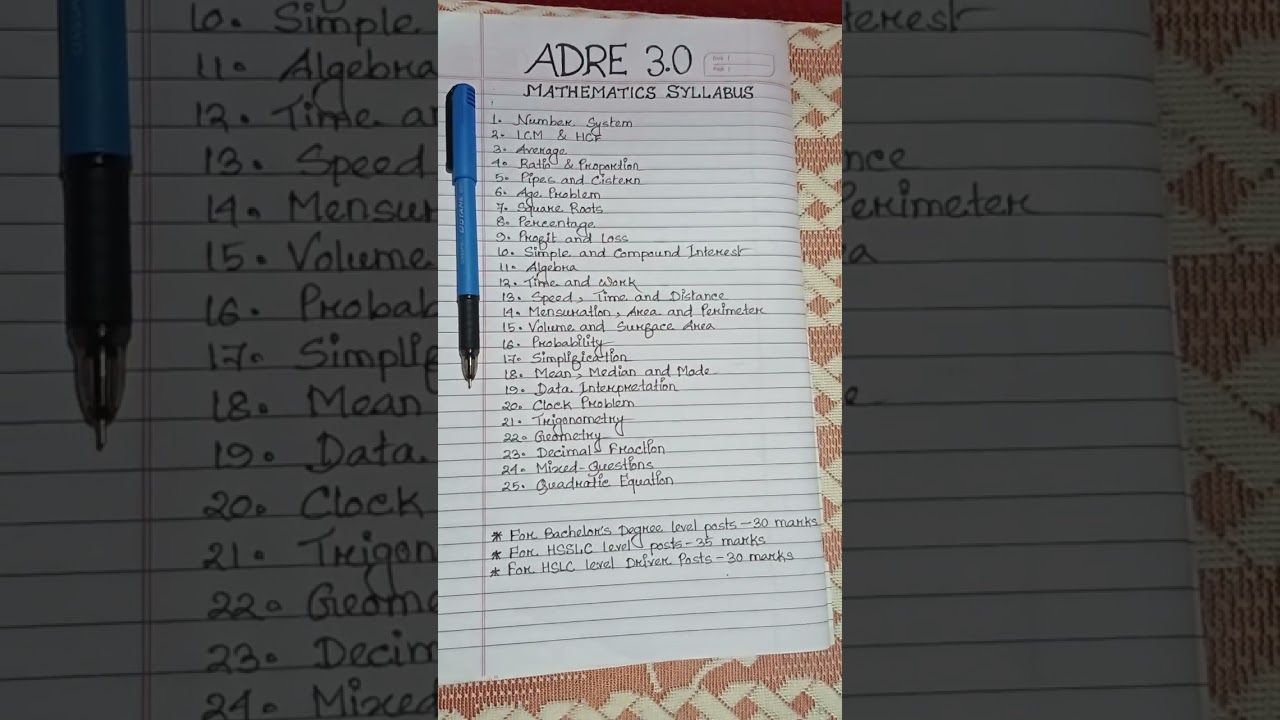 ADRE 3.0
MATHEMATICS SYLLABUS
1. Number System
2. LCM & HCF
3. Average
4. Ratio & Proportion
5. Pipes and Cistern
6. Age Problem
7. Square Roots
8. Percentage
9. Profit and Loss
10. Simple and Compound Interest
11. Algebra
12. Time and Work
13. Speed, Time and Distance
14. Mensuration, Area and Perimeter
15. Volume and Surface Area
16. Probability
17. Simplification
18. Mean, Median and Mode
19. Data Interpretation
20. Clock Problem
21. Trigonometry
22. Geometry
23. Decimal Fraction
24. Mixed-Questions
25. Quadratic Equation
* For Bachelor's Degree level posts - 30 marks
* For HSSLC level posts - 35 marks
* For HSLC level Driver Posts - 30 marks